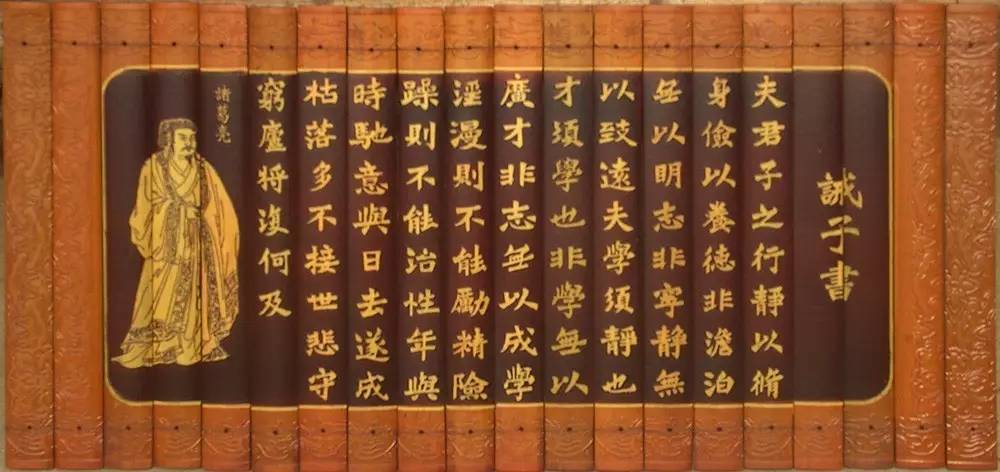 誡子書
夫君子之行靜以脩
身儉以養德非澹泊
無以明志非寧靜無
以致遠夫學須靜也
才須學也非學無以
廣才非志無以成學
淫漫則不能勵精險
躁則不能治性年與
時馳意與日去遂成
枯落多不接世悲守
窮廬將復何及
諸葛亮